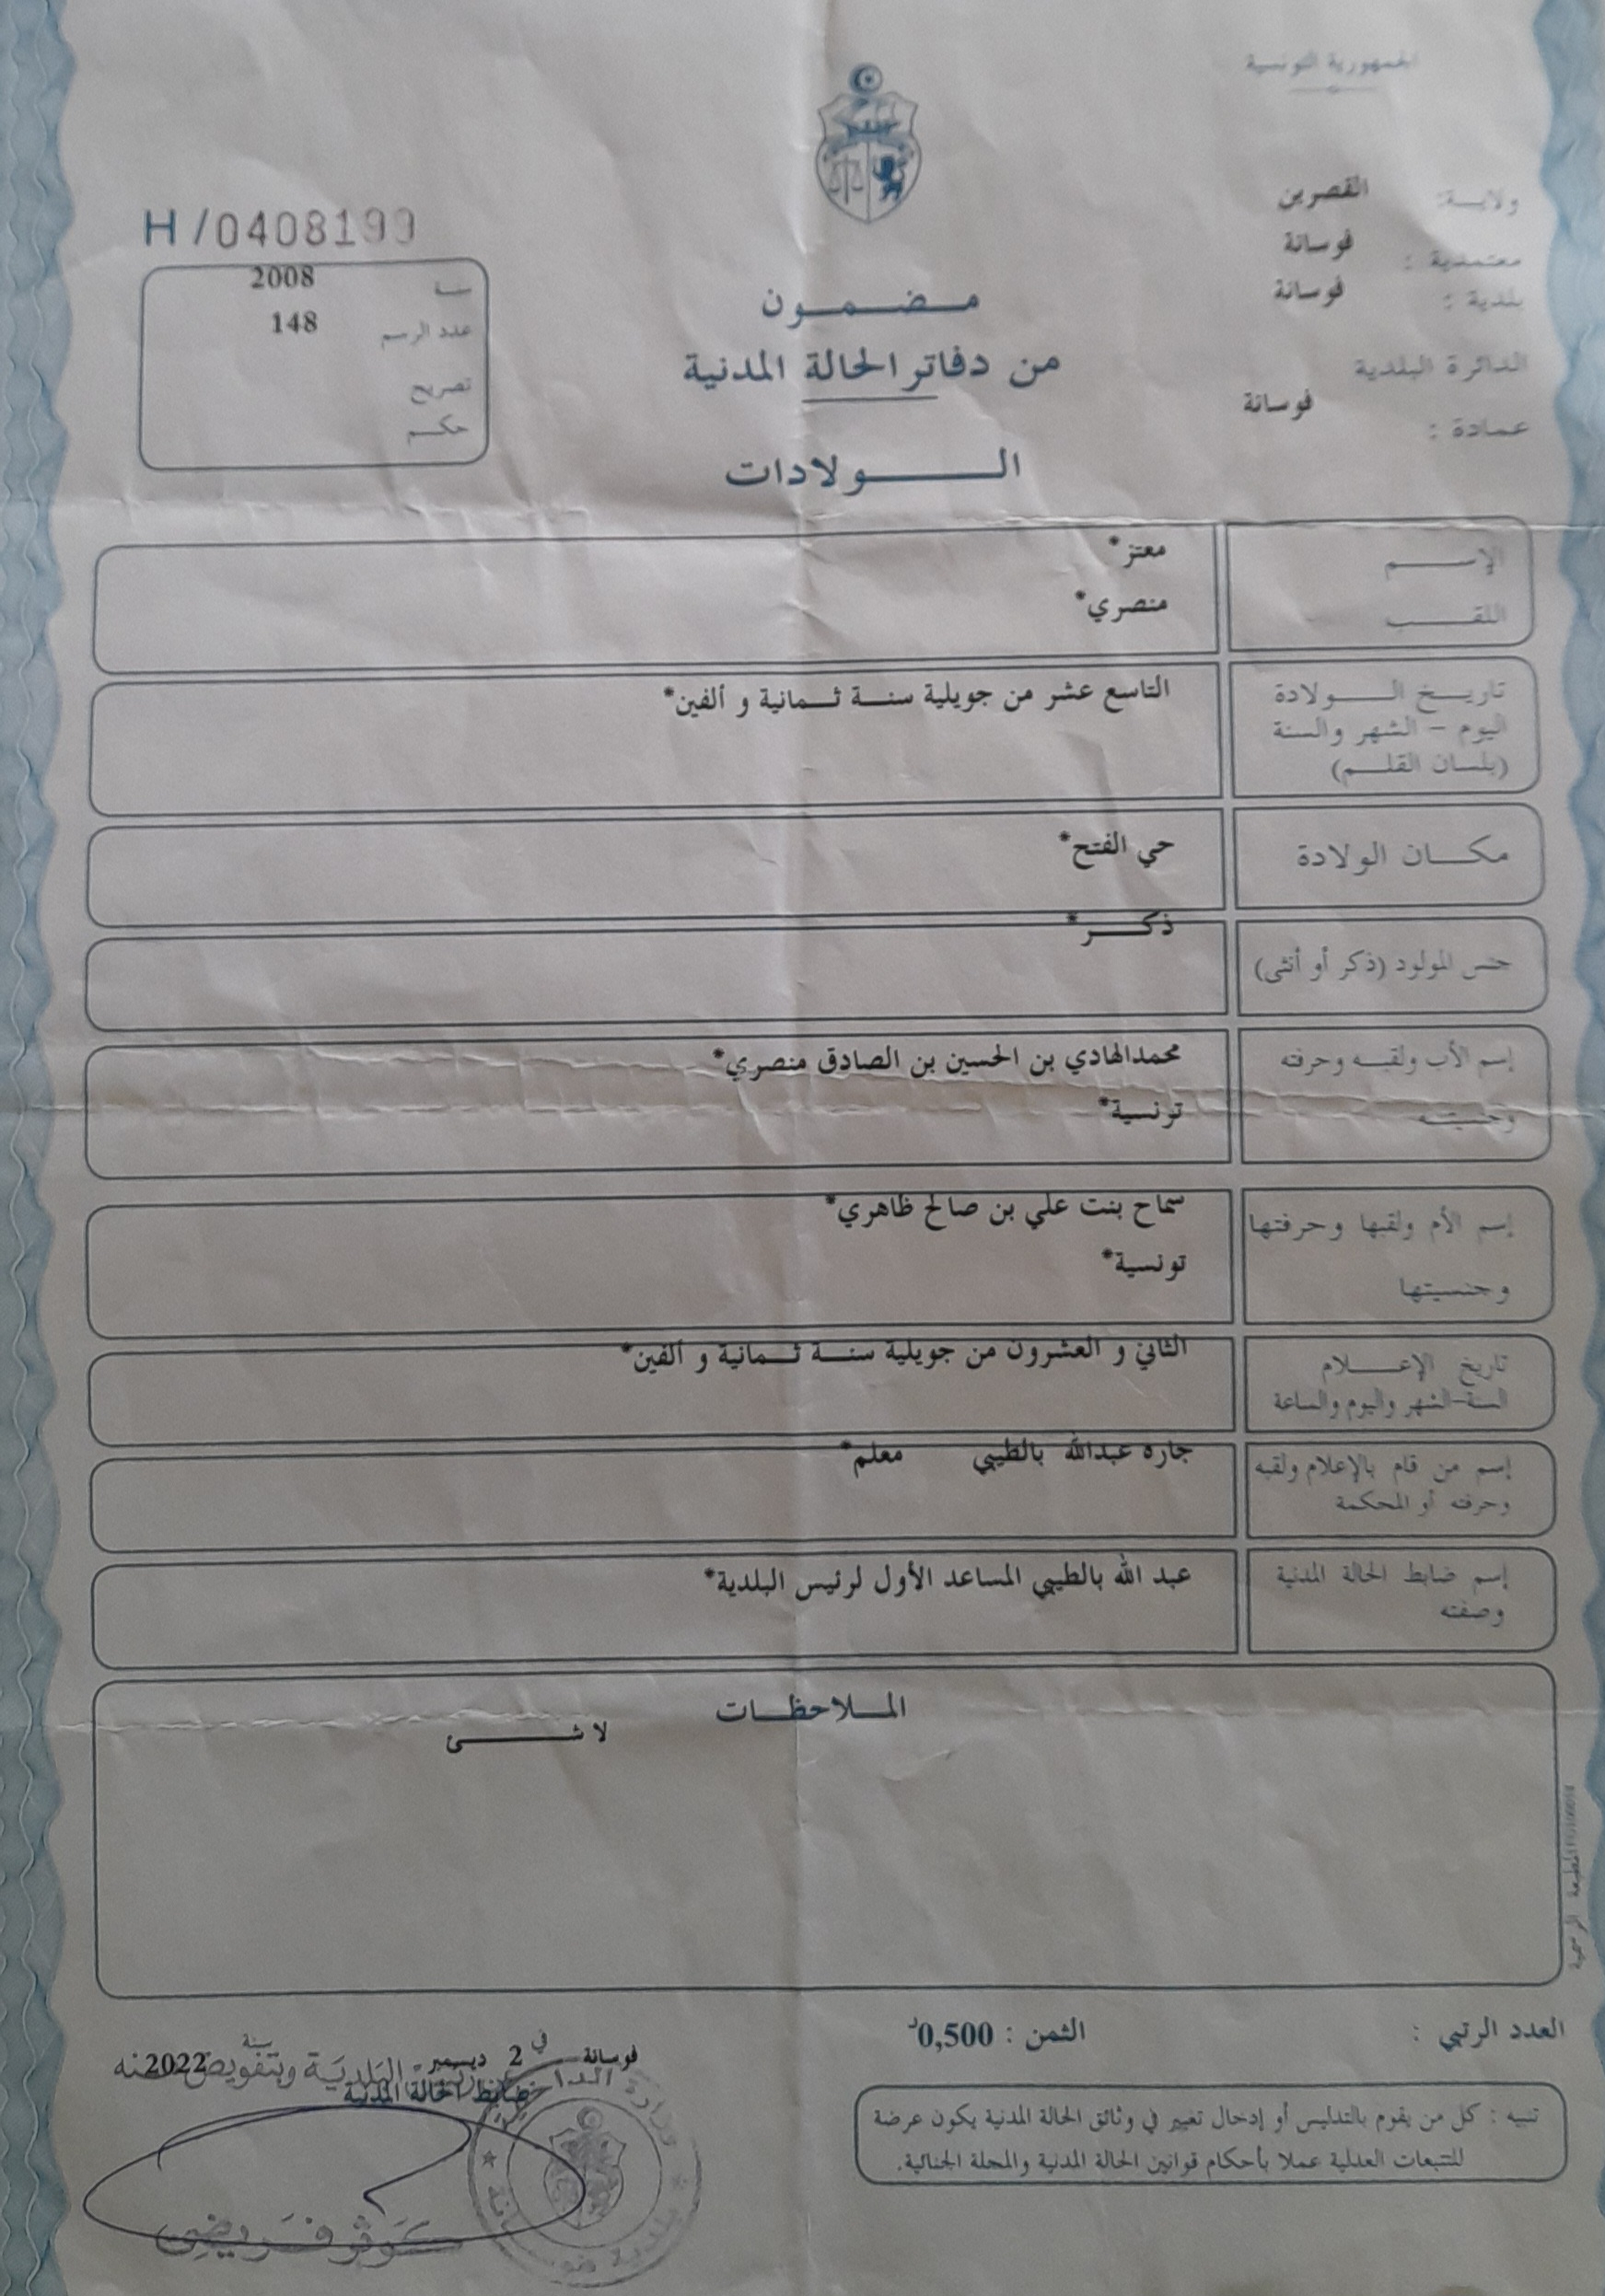 الجمهورية التونسية
ولايـة: القصرين
معتمدية : فوسانة
بلدية : فوسانة
الدائرة البلدية
عمادة : فوسانة
H/0408199
سنـة 2008
عدد الرسم 148
تصريح
حكـم
مـضـمـون
من دفاتر الحالة المدنية
الـولادات
الإسـم معتز*
اللقـب منصري*
تاريـخ الـولادة التاسع عشر من جويلية سنـة ثـمانية و ألفين*
اليوم – الشهر والسنة
(بلسان القلـم)
مكـان الولادة حي الفتح*
جنس المولود (ذكر أو أنثى) ذكـر*
إسم الأب ولقبـه وحرفته محمدالهادي بن الحسين بن الصادق منصري*
وجنسيتـه تونسية*
إسم الأم ولقبها وحرفتها سماح بنت علي بن صالح ظاهري*
وجنسيتها تونسية*
تاريخ الإعـلام الثاني و العشرون من جويلية سنـة ثـمانية و ألفين*
السنة-الشهر واليوم والساعة
إسم من قام بالإعلام ولقبه جاره عبدالله بالطيبي معلم*
وحرفته أو المحكمة
إسم ضابط الحالة المدنية عبد الله بالطيبي المساعد الأول لرئيس البلدية*
وصفته
المـلاحظـات
لا شـئ
المطبعة الرسمية
العدد الرتبي :
الثمن : 0,500د
فوسانة في 2 ديسمبر سنة 2022
البلدية وبتفويض منه
ضابط الحالة المدنية
تنبيه : كل من يقوم بالتدليس أو إدخال تغيير في وثائق الحالة المدنية يكون عرضة
للتتبعات العدلية عملا بأحكام قوانين الحالة المدنية والمجلة الجنائية.